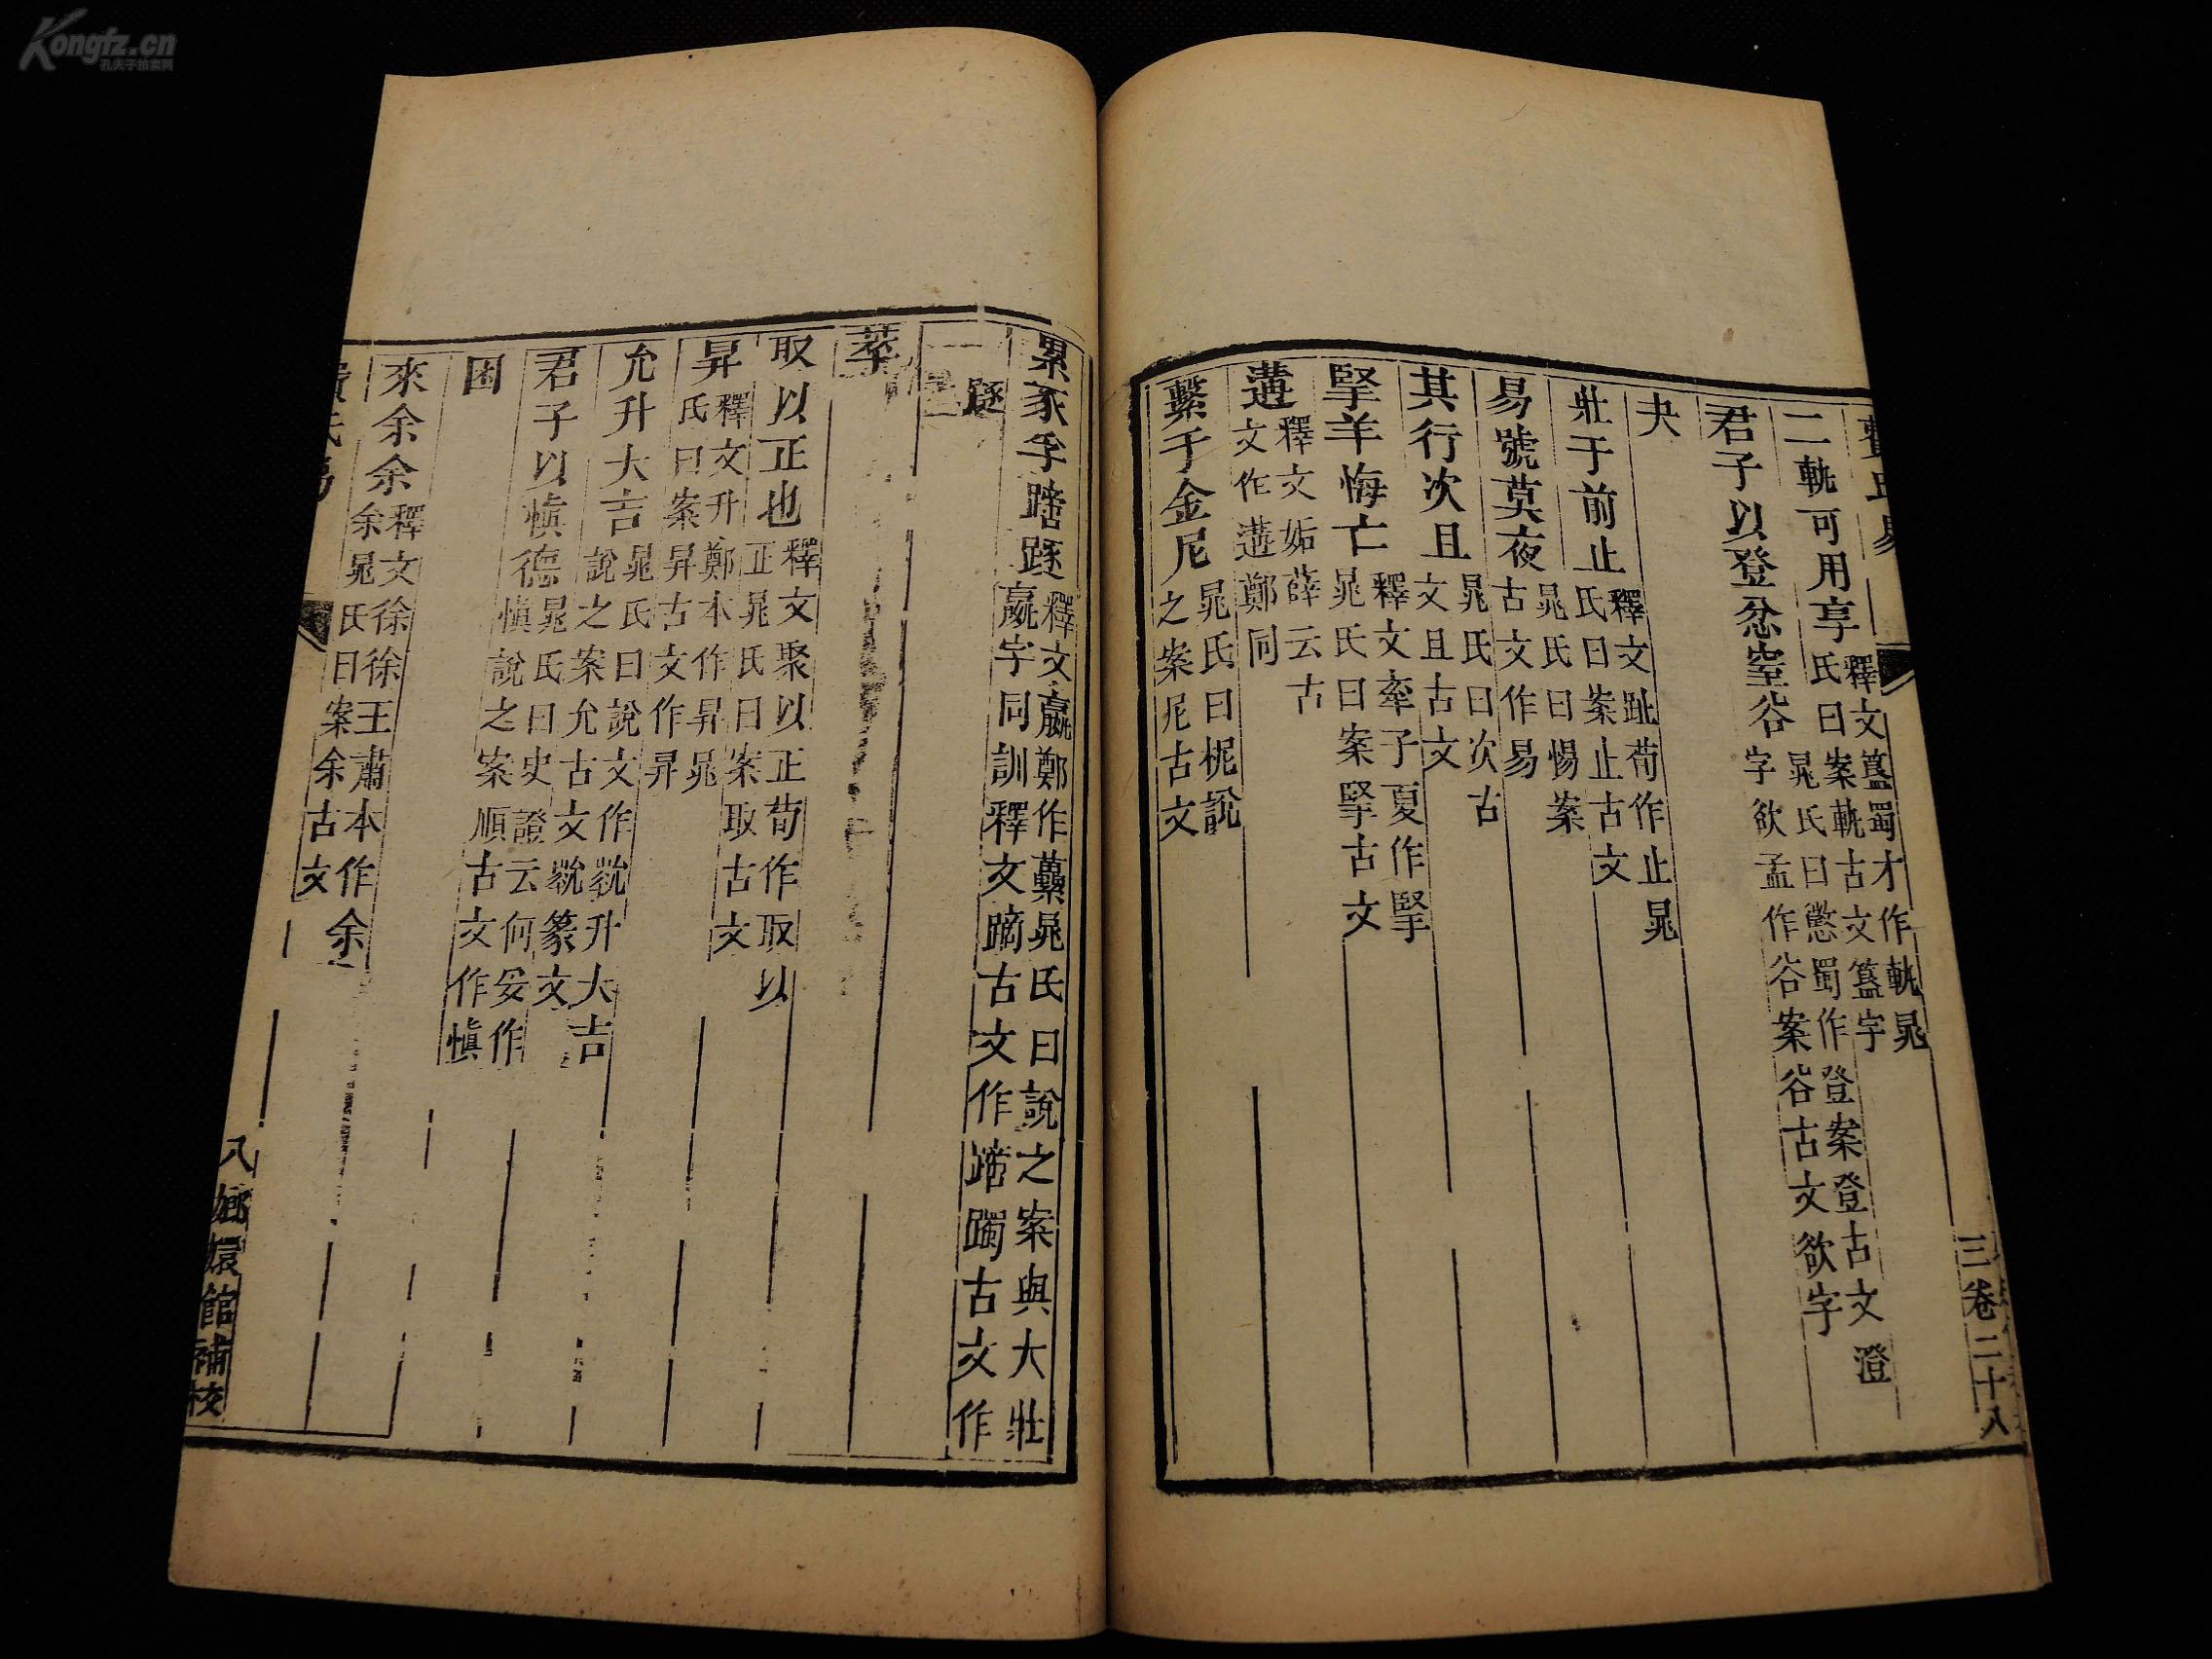 Kongfz.cn
孔夫子拍卖网
費氏易
三
卷二十八
二軌可用享釋文簋蜀才作軌晁
氏曰案軌古文簋字
君子以登忿窒谷晁氏曰懲蜀作登案登古文澄
字欲孟作谷案谷古文欲字
夬
壯于前止釋文趾荀作止晁
氏曰案止古文
易號莫夜晁氏曰惕案
古文作易
其行次且晁氏曰次古
文且古文
掔羊悔亡釋文牽子夏作掔
晁氏曰案掔古文
遘釋文姤薛云古
文作遘鄭同
繫于金尼晁氏曰柅說
之案尼古文
累豕孚蹢釋文羸鄭作虆晁氏曰說之案與大壯
羸字同訓釋文蹢古文作蹢躅古文作
萃
取以正也釋文聚以正荀作取以
正晁氏曰案取古文
昇釋文升鄭本作昇晁
氏曰案昇古文作昇
允升大吉晁氏曰說文作㽙升大吉
說之案允古文㽙篆文
君子以慎德晁氏曰史證云何妥作
慎說之案順古文作慎
困
來余余釋文徐徐王肅本作余
余晁氏曰案余古文
八
嫏嬛館補校